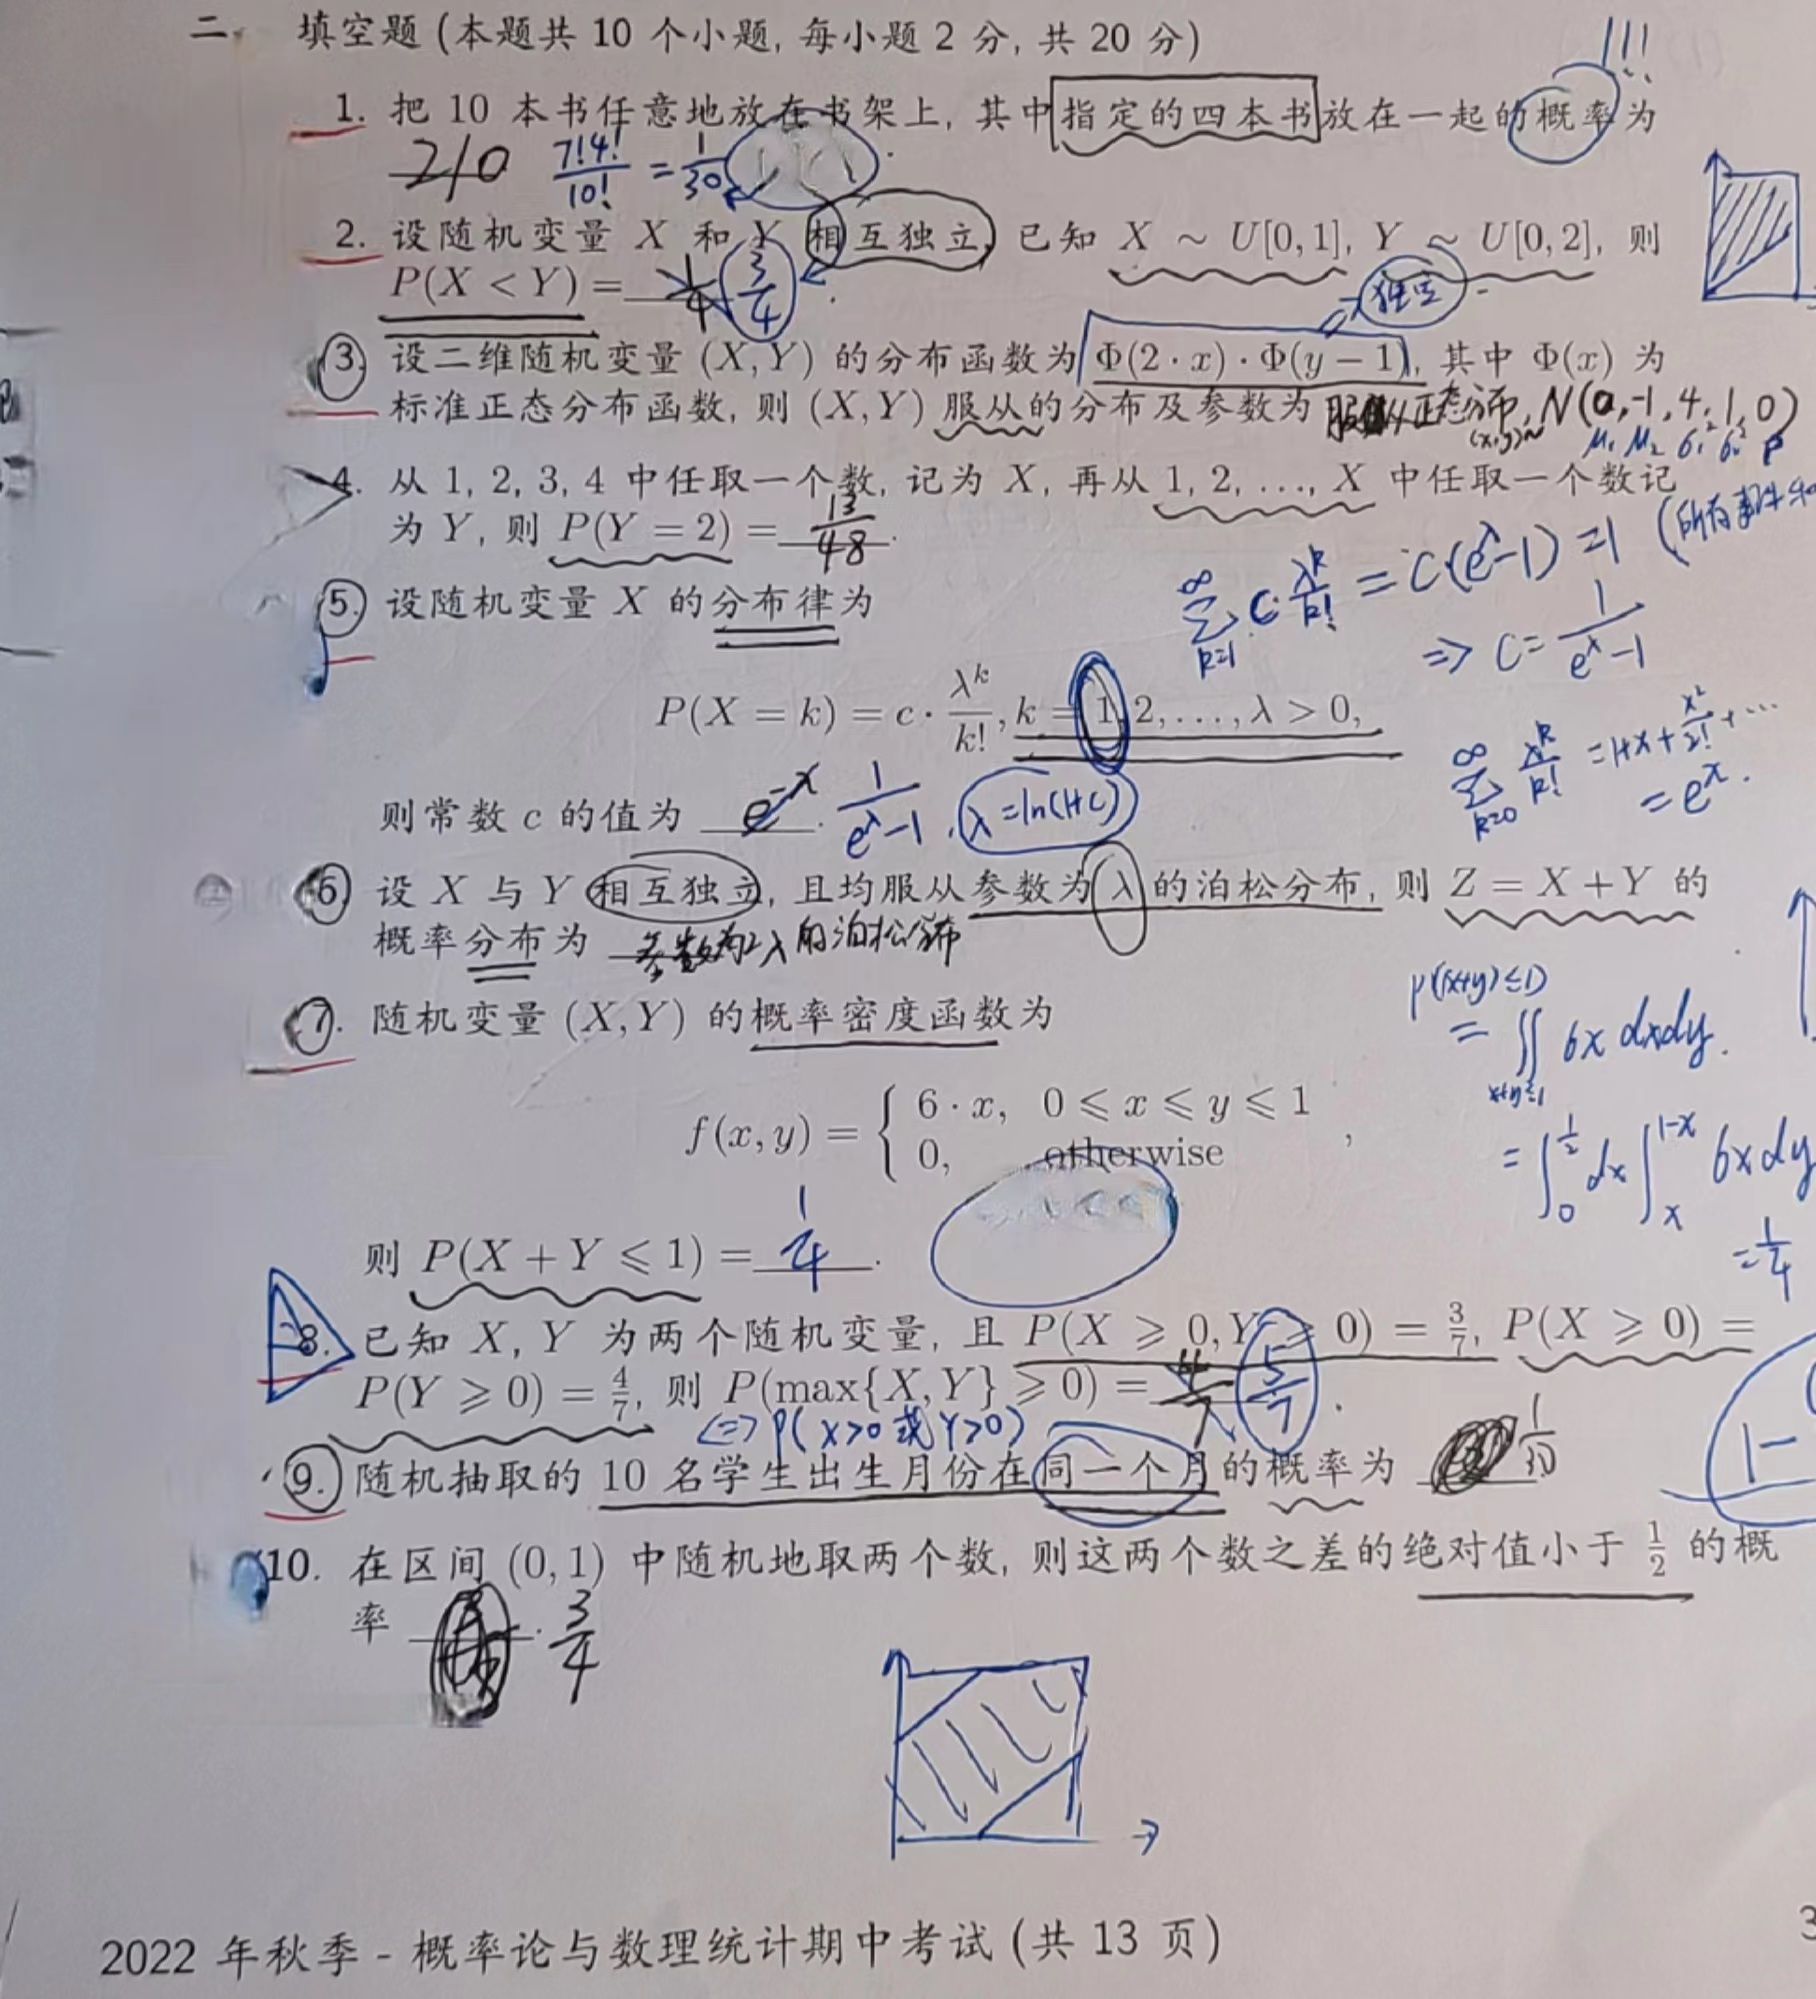 二、 填空题 (本题共 10 个小题, 每小题 2 分, 共 20 分)
!!!
1. 把 10 本书任意地放在书架上, 其中指定的四本书放在一起的概率为
210 7!4!/10! = 1/30 .
2. 设随机变量 X 和 Y 相互独立, 已知 X ∼ U[0,1], Y ∼ U[0,2], 则
P(X < Y) = 1/4 3/4 .
独立
3. 设二维随机变量 (X,Y) 的分布函数为 Φ(2·x)·Φ(y−1), 其中 Φ(x) 为
标准正态分布函数, 则 (X,Y) 服从的分布及参数为 服从正态分布, N(0,-1,4,1,0)
(x,y)~ μ₁ μ₂ σ₁² σ₂² ρ
4. 从 1, 2, 3, 4 中任取一个数, 记为 X, 再从 1, 2, ..., X 中任取一个数记
为 Y, 则 P(Y = 2) = 13/48 .
∞∑k=1 c·λ^k/k! = c(e^λ-1) = 1 (所有事件和
⇒ c = 1/(e^λ-1)
5. 设随机变量 X 的分布律为
P(X = k) = c · λ^k/k!, k = 1, 2, ..., λ > 0,
∞∑k=0 x^k/k! = 1+x+x²/2!+⋯
= e^x.
则常数 c 的值为 e^-λ . 1/(e^λ-1) , λ=ln(1+c)
6. 设 X 与 Y 相互独立, 且均服从参数为 λ 的泊松分布, 则 Z = X + Y 的
概率分布为 参数为2λ的泊松分布
7. 随机变量 (X,Y) 的概率密度函数为
P((x+y)≤1)
= ∬x+y≤1 6x dxdy.
f(x,y) = { 6·x, 0 ⩽ x ⩽ y ⩽ 1
0, otherwise ,
= ∫₀^½ dx ∫ₓ^1-x 6x dy
= 1/4
则 P(X + Y ⩽ 1) = 1/4 .
8. 已知 X, Y 为两个随机变量, 且 P(X ⩾ 0, Y ⩾ 0) = 3/7, P(X ⩾ 0) =
P(Y ⩾ 0) = 4/7, 则 P(max{X,Y} ⩾ 0) = 4/7 5/7 .
⇔ P(X>0 或 Y>0)
9. 随机抽取的 10 名学生出生月份在同一个月的概率为
1-
10. 在区间 (0,1) 中随机地取两个数, 则这两个数之差的绝对值小于 1/2 的概
率 . 3/4
2022 年秋季 - 概率论与数理统计期中考试 (共 13 页)
3